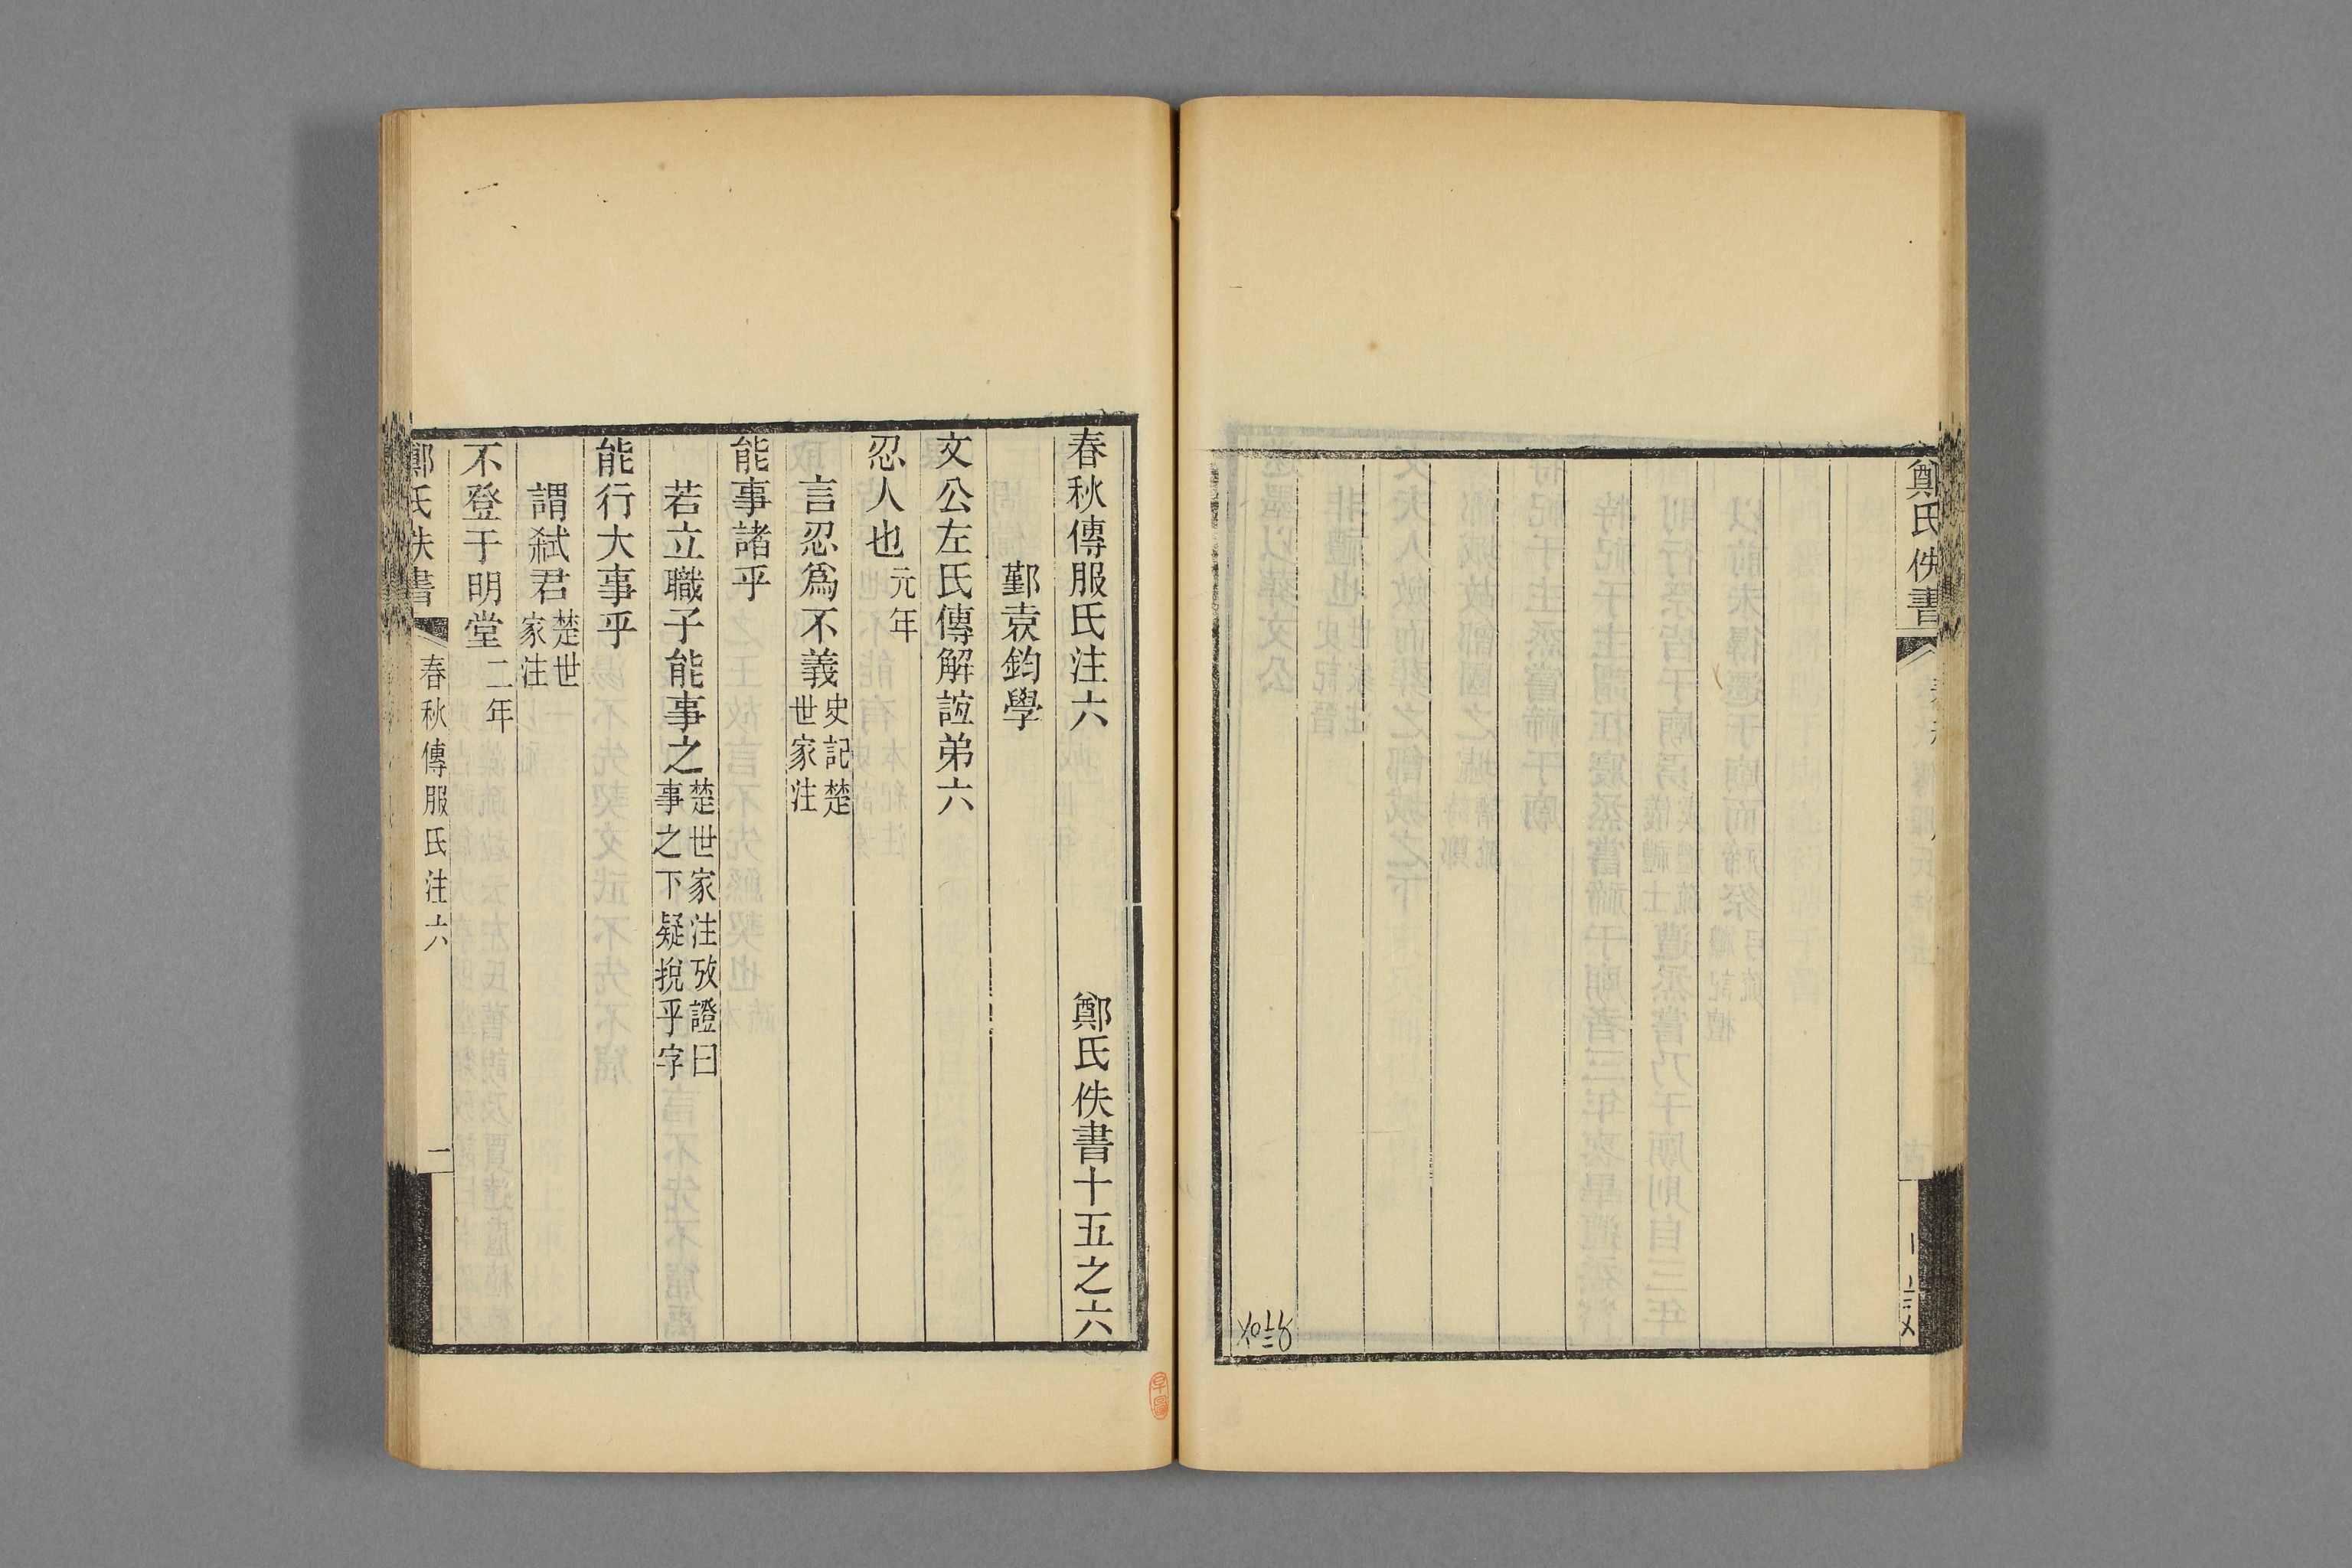 鄭氏佚書
春秋傳服氏注六 鄭氏佚書十五之六
鄞袁鈞學
文公左氏傳解誼弟六
忍人也元年
言忍爲不義史記楚世家注
能事諸乎
若立職子能事之楚世家注攷證曰事之下疑挩乎字
能行大事乎
謂弑君楚世家注
不登于明堂二年
鄭氏佚書 春秋傳服氏注六 一